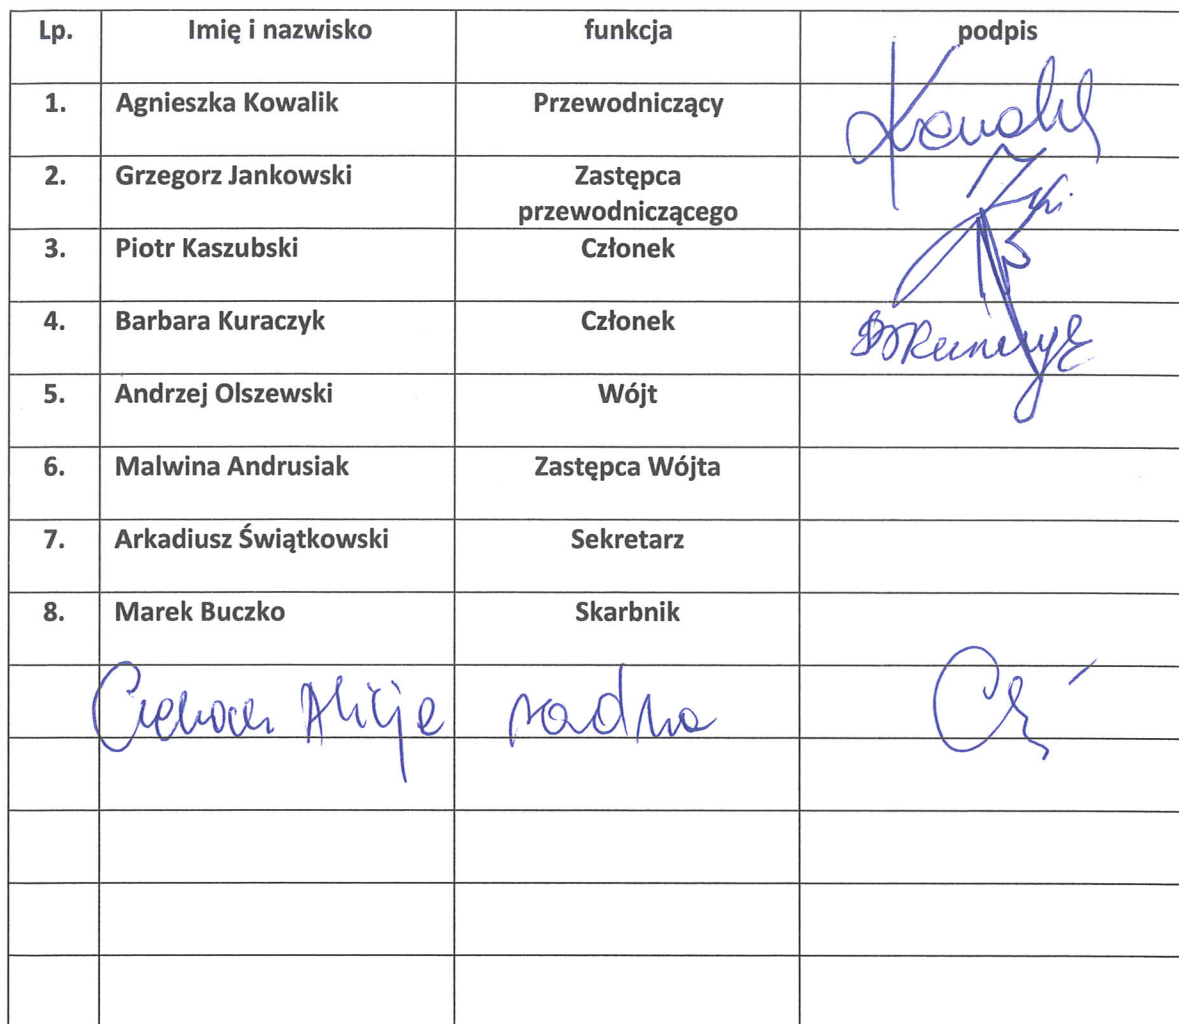 Lp. Imię i nazwisko funkcja podpis
1. Agnieszka Kowalik Przewodniczący Kowalik
2. Grzegorz Jankowski Zastępca
przewodniczącego
3. Piotr Kaszubski Członek
4. Barbara Kuraczyk Członek
5. Andrzej Olszewski Wójt
6. Malwina Andrusiak Zastępca Wójta
7. Arkadiusz Świątkowski Sekretarz
8. Marek Buczko Skarbnik
Alicja radna